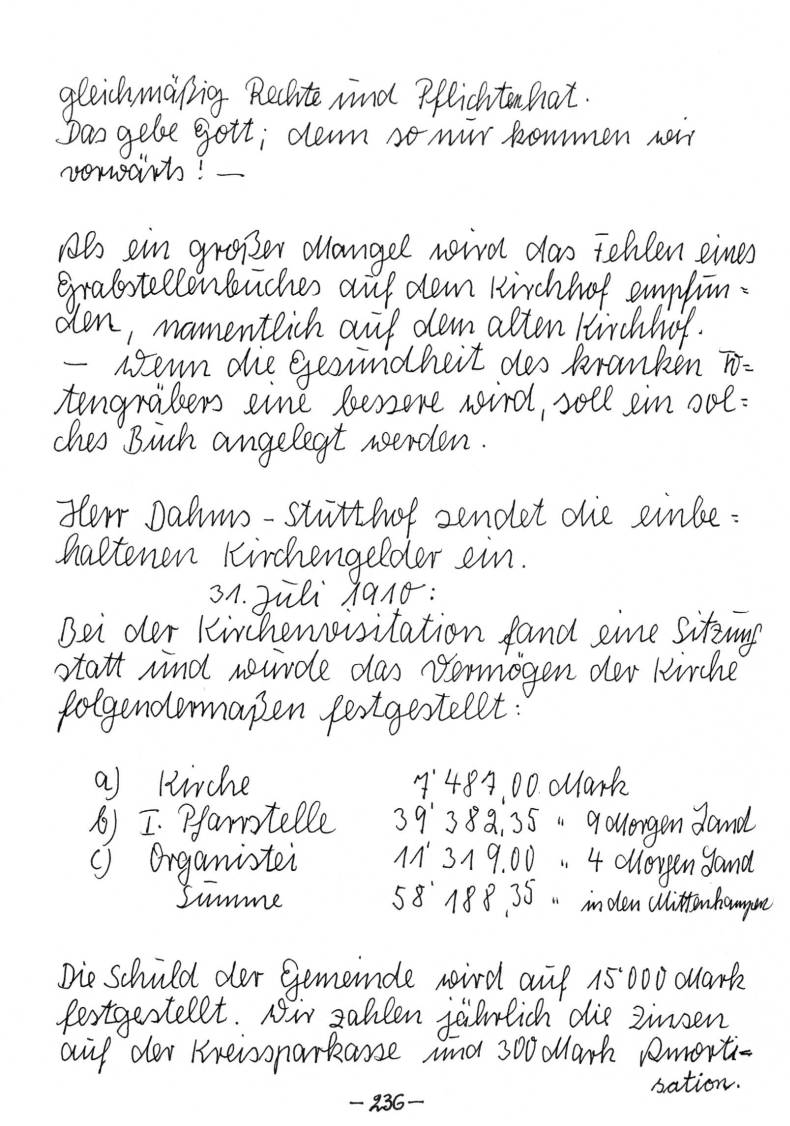 gleichmäßig Rechte und Pflichten hat.
Das gebe Gott; denn so nur kommen wir
vorwärts! —
Als ein großer Mangel wird das Fehlen eines
Grabstellenbuches auf dem Kirchhof empfun=
den, namentlich auf dem alten Kirchhof.
— Wenn die Gesundheit des kranken To=
tengräbers eine bessere wird, soll ein sol=
ches Buch angelegt werden.
Herr Dahms - Stutthof sendet die einbe=
haltenen Kirchengelder ein.
31. Juli 1910:
Bei der Kirchenvisitation fand eine Sitzung
statt und wurde das Vermögen der Kirche
folgendermaßen festgestellt:
a) Kirche 7'487,00 Mark
b) I. Pfarrstelle 39'382,35 " 9 Morgen Land
c) Organistei 11'319.00 " 4 Morgen Land
Summe 58'188,35 " in den Mittenkampen
Die Schuld der Gemeinde wird auf 15'000 Mark
festgestellt. Wir zahlen jährlich die Zinsen
auf der Kreissparkasse und 300 Mark Amorti=
sation.
- 236 -